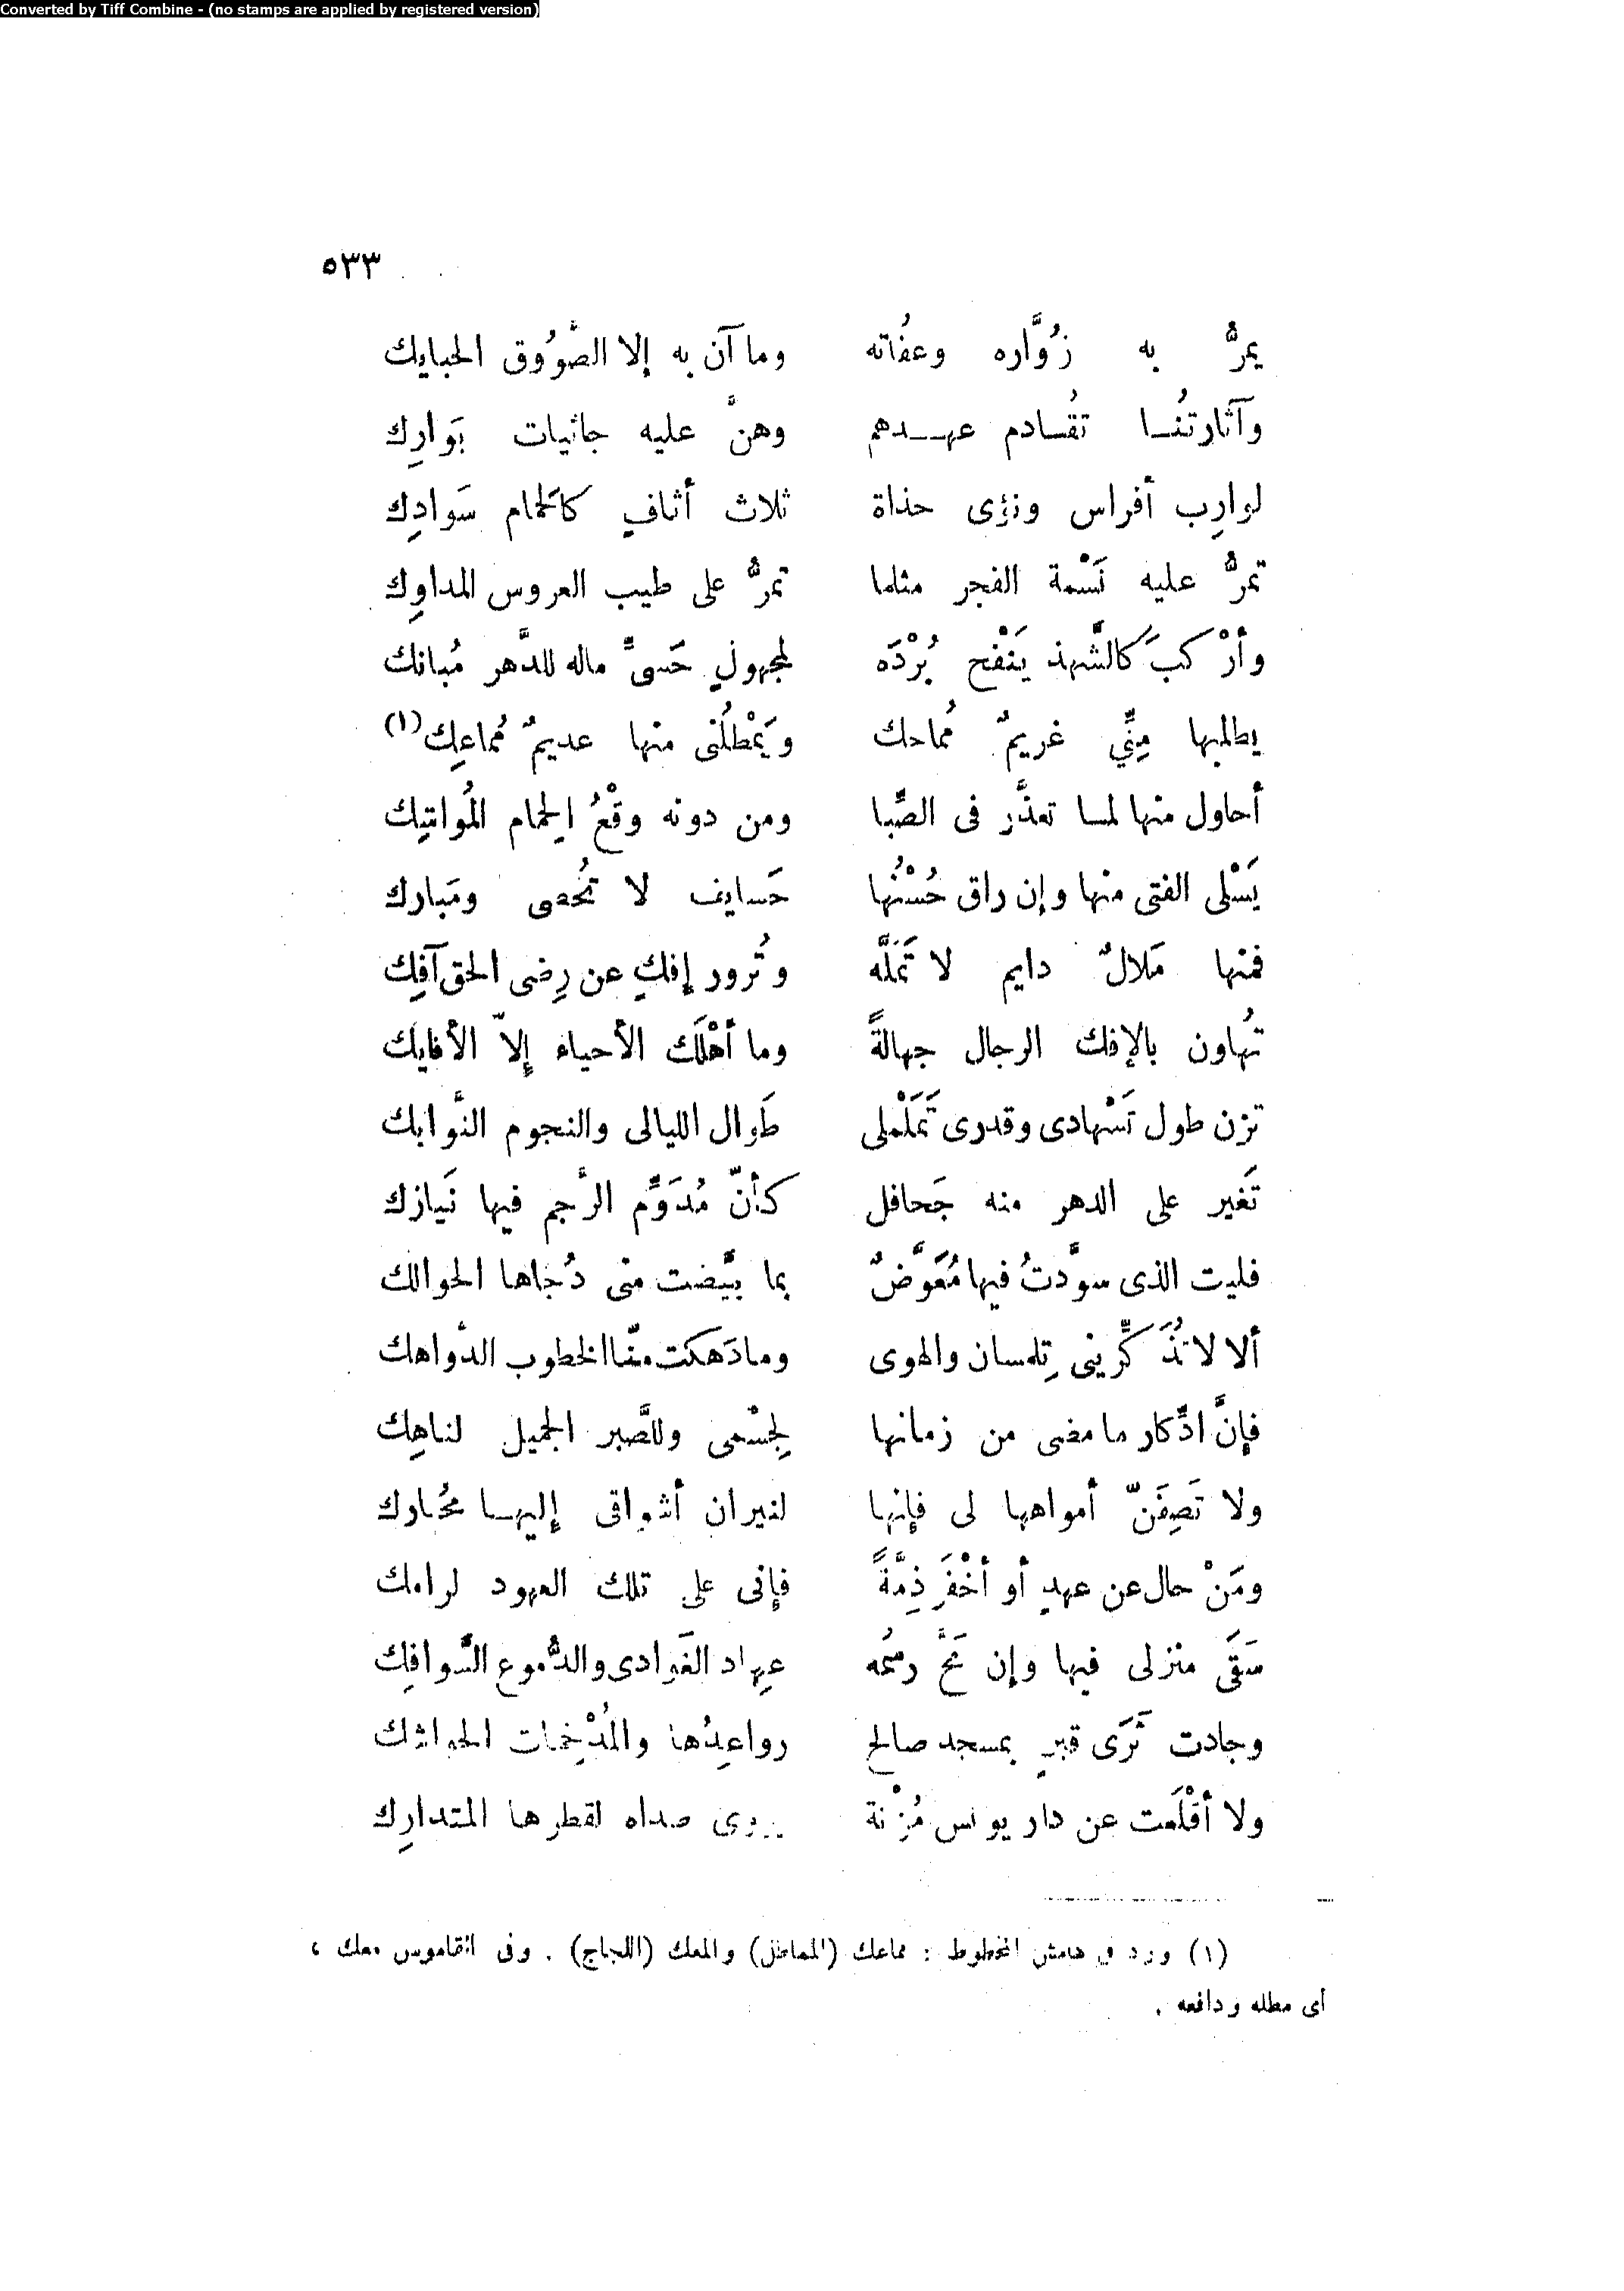 Converted by Tiff Combine - (no stamps are applied by registered version)
٥٣٣
يمرُّ به زُوَّاره وعفُاته وما آن به إلا الضَّوُوق الحبايك
وآثارتُنــا تقُـادم عهــدهم وهنَّ عليه جاثيات بَوارِك
لوارِب أفراس ونؤى حذاة ثلاث أثافٍ كالحَمام سَوادِك
تمرُّ عليه نَسْمة الفجر مثلما تمرُّ على طيب العروس المداوِك
وأرْكبَ كالشَّهد يَنْفح بُرْدَه لمجهولٍ حَسىًّ ماله للدَّهر مُبانك
يطالبها مِنِّي غريمٌ مُماحك ويَمْطلُنى منها عديمٌ مُماعِك(١)
أحاول منها لمـا تعذَّر فى الصِّبا ومن دونه وقْعُ الحِمام المُواتيِك
يَسْلى الفتى منها وإن راق حُسْنُها حَسايف لا تُحصى ومَبارك
فمنها مَلالٌ دايم لا تَمَلَّه وتُرور إفكٍ عن رِضى الحق آفِك
تهُاون بالإفك الرجال جهالةً وما أهْلَك الأحياء إلاّ الأفايك
تزن طول تَسْهادى وقدرى تَمَلْملى طَوال الليالى والنجوم النَّوابك
تَغير على الدهر منه جَحافل كأنّ مُدَوِّم الرَّجم فيها نَيازك
فليت الذى سوَّدتُ فيها مُعَوَّضٌ بما بيَّضت منى دُجاها الحوالك
ألا لا تُذَكِّرينى تِلمسان والهوى وما دَهكت منّا الخطوب الدَّواهك
فإنَّ ادِّكار ما مضى من زمانها لِجسْمى وللصَّبر الجميل لناهِك
ولا تَصِفَنّ أمواهها لى فإنها لنيران أشواقى إليهـا محُارك
ومَنْ حال عن عهدٍ أو أخْفَر ذِمَّةً فإنى على تلك العهود لرامك
سَقَى منزلى فيها وإن مَحَّ رسمُه عِهاد الغَوادى والدُّموع السَّوافِك
وجادت ثَرَى قبرٍ بمسجد صالح رواعِدُها والمُدْخِمات الحواشك
ولا أقْلَعت عن دار يونس مُزْنة يروى صداه لقطرها المتدارِك
(١) ورد فى هامش المخطوط : مماعك (المماطل) والمعك (اللجاج) . وفى القاموس معك ،
أى مطله ودافعه .